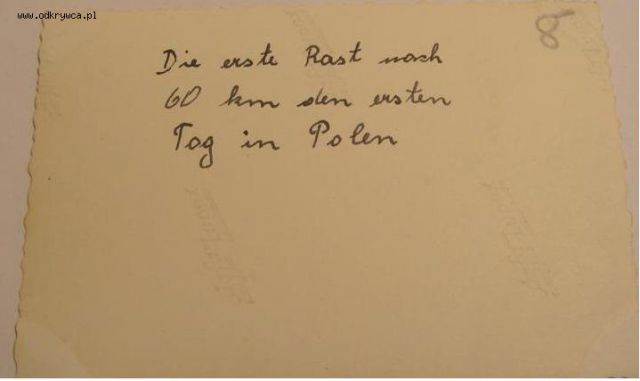 www.odkrywca.pl
8
Die erste Rast nach
60 km den ersten
Tag in Polen